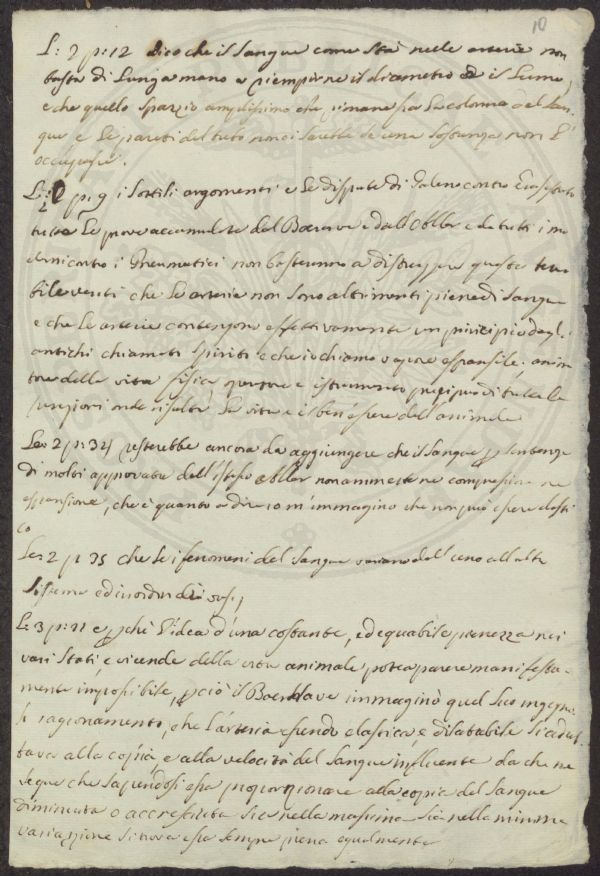 10
L: 2 p: 12 dico che il sangue come sta nelle arterie non
basta di lunga mano a riempirne il diametro ed il lume,
e che quello spazzio amplissimo che rimane fra la colonna del san-
gue e le pareti del tubo non ci sarebbe se una sostanza non l'
occupasse.
L: 2 p: 9 i sottili argomenti e le dispute di Galeno contro Erasistrato
tutte le prove accumulate dal Boerave e dall'Aller e da tutti i mo
derni contro i Pneumatici non basteranno a distruggere questa
verità che le arterie non sono altrimenti piene di sangue
e che le arterie contengono effettivamente un principio dagl'
antichi chiamati spiriti e che io chiamo vapore espansile. anima
della vita fisica, e istrumento precipuo di tutte le
funzioni onde risulta la vita e il ben'essere dell'animale
Les 2 p: 34 resterebbe ancora da aggiungere che il sangue p sentenza
di molti approvata dall'istesso Aller non ammette ne compressione ne
espansione, che è quanto a dire io m'immagino che non può essere elasti
co
Les 2 p 35 che se i fenomeni del sangue variano dall'uno all'altro
sistema
L: 3 p: 11 e p chè l'idea d'una costante, ed equabile pienezza nei
vari stati, e vicende della vita animale potea parere manifesta-
mente impossibile, p ciò il Boerhave immaginò quel suo ingegno-
so ragionamento, che l'arteria essendo elastica, e dilatabile si adat
tava alla copia, e alla velocità del sangue influente da che ne
segue che sapendosi essa proporzionare alla copia del sangue
diminuita o accresciuta sia nella massima sia nella minima
variazione si trova essa sempre piena egualmente